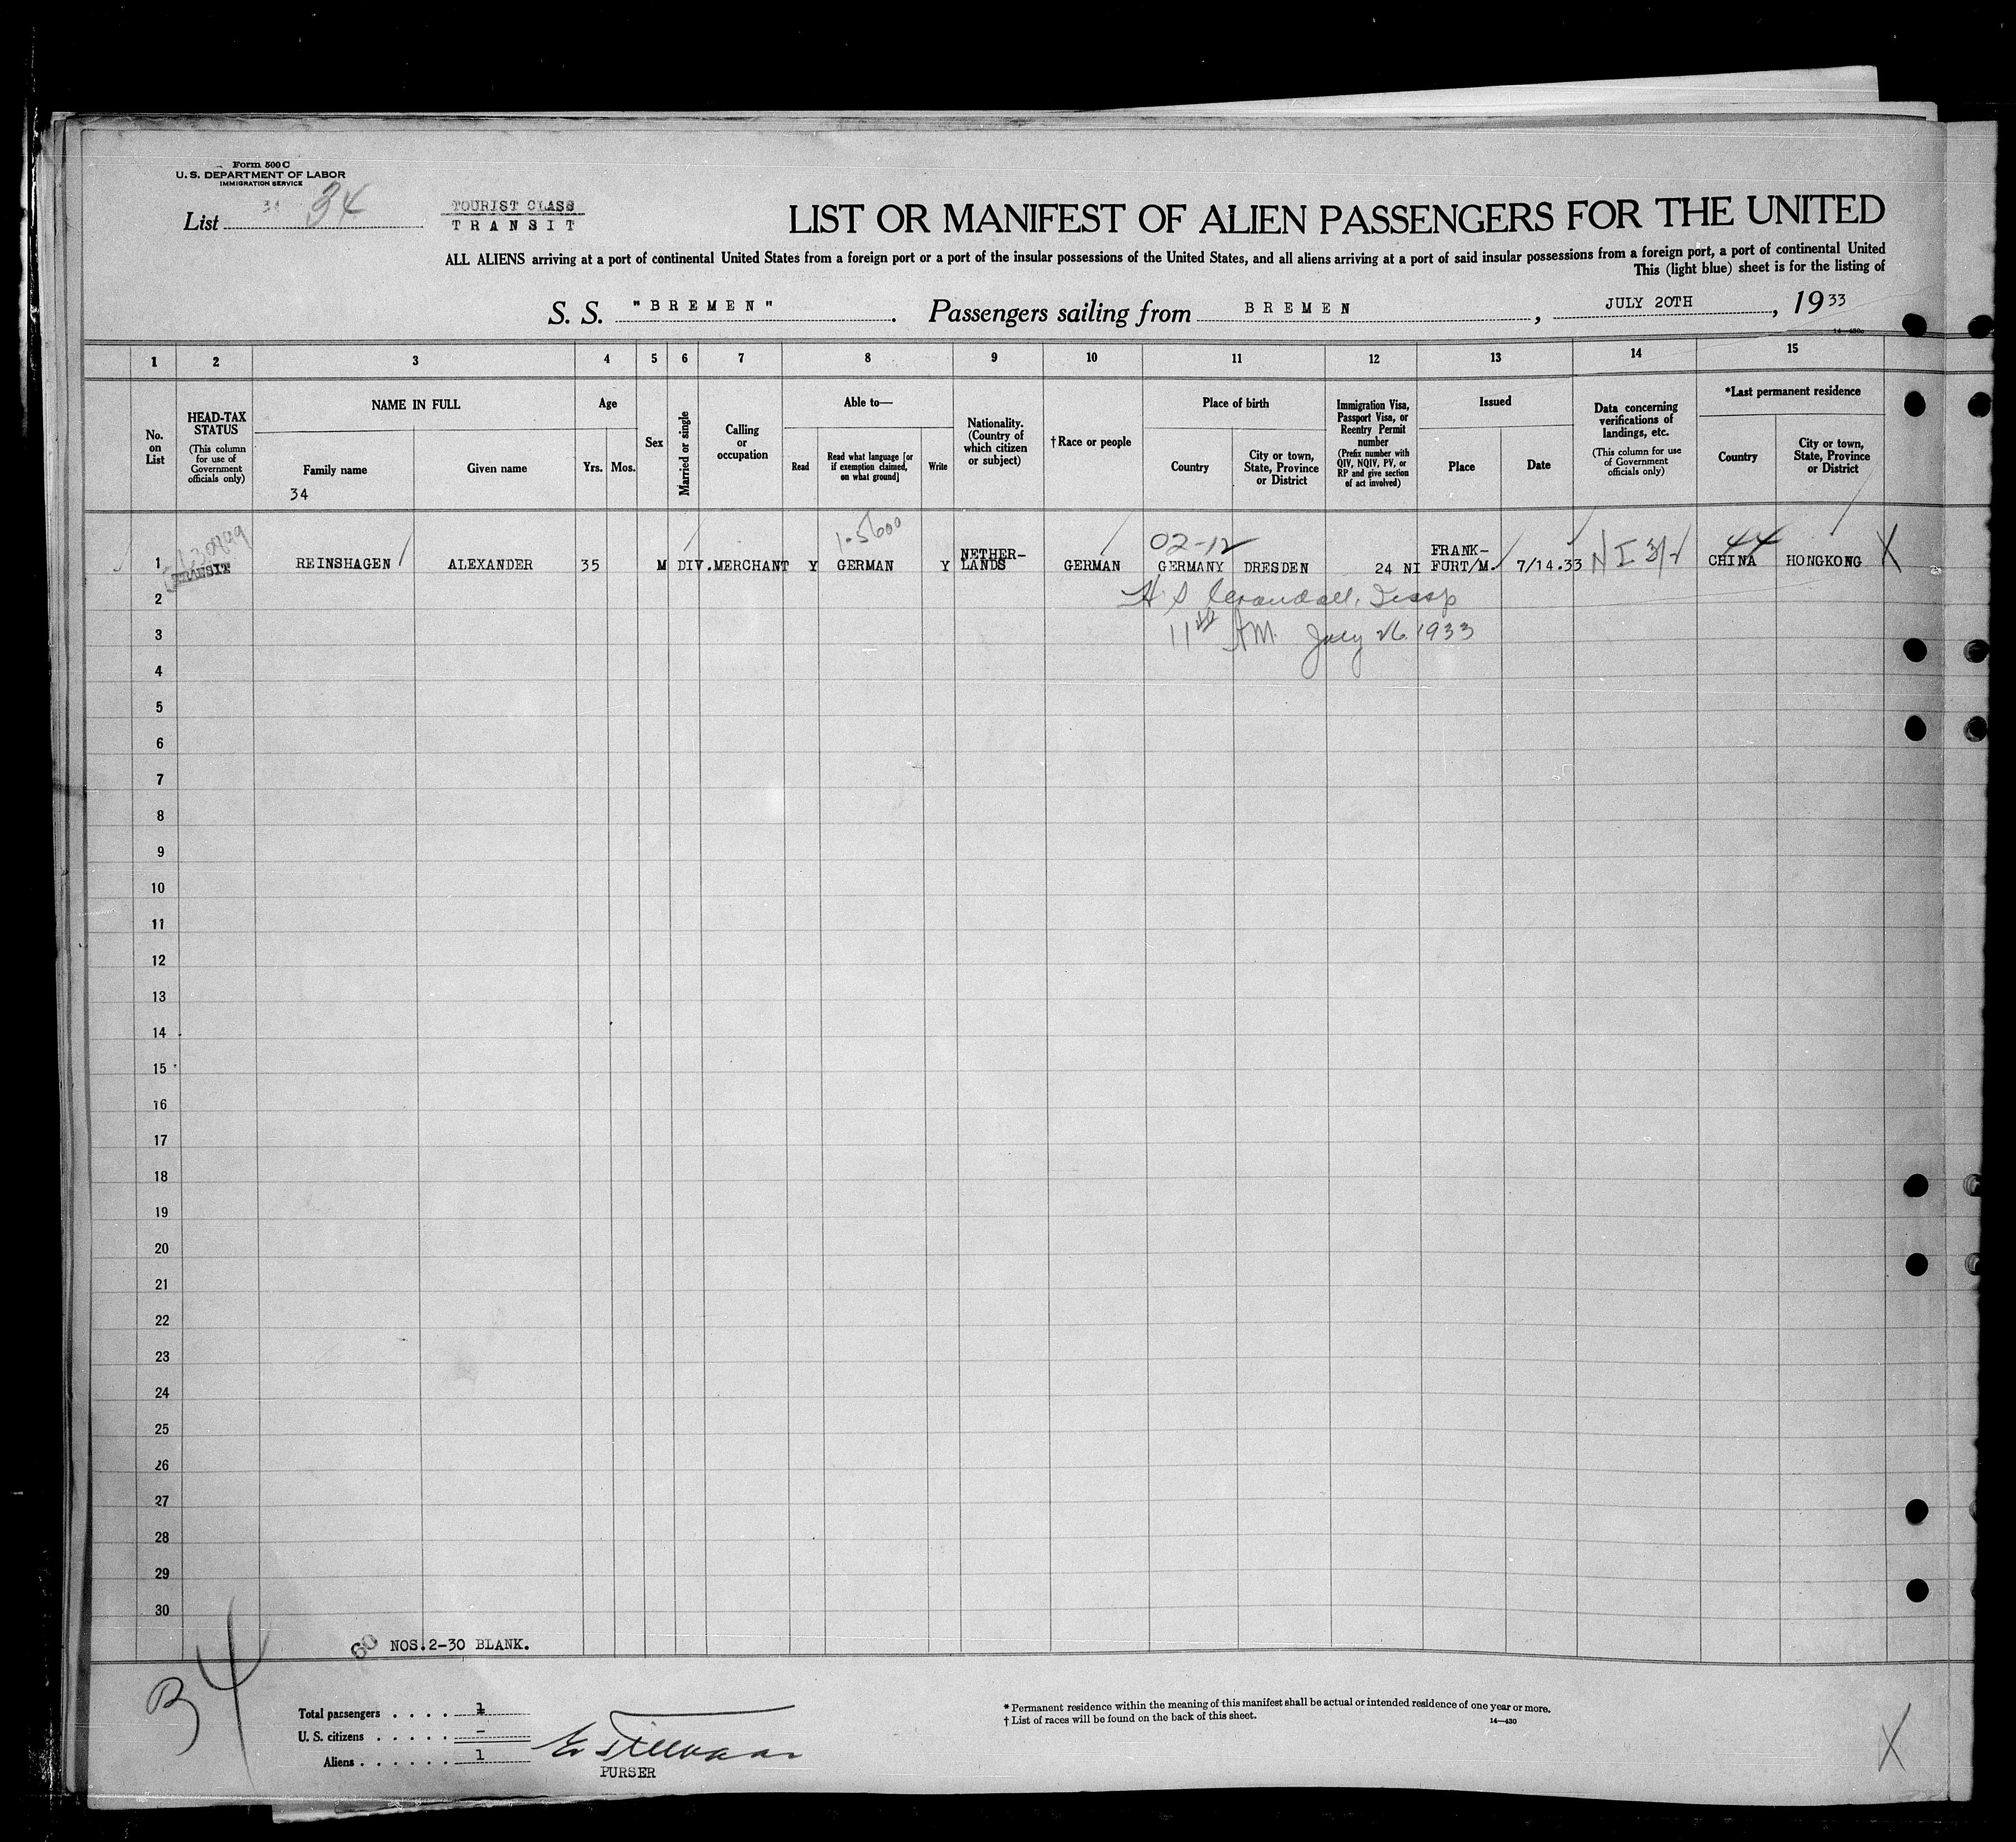 Form 500 C
U. S. DEPARTMENT OF LABOR
IMMIGRATION SERVICE
List 34 34
TOURIST CLASS
TRANSIT
LIST OR MANIFEST OF ALIEN PASSENGERS FOR THE UNITED
ALL ALIENS arriving at a port of continental United States from a foreign port or a port of the insular possessions of the United States, and all aliens arriving at a port of said insular possessions from a foreign port, a port of continental United
This (light blue) sheet is for the listing of
S. S. "BREMEN". Passengers sailing from BREMEN, JULY 20TH, 1933
14—430c
1 2 3 4 5 6 7 8 9 10 11 12 13 14 15
No. on List
HEAD-TAX STATUS
(This column for use of Government officials only)
NAME IN FULL
Family name
Given name
34
Age
Yrs. Mos.
Sex
Married or single
Calling or occupation
Able to—
Read
Read what language [or if exemption claimed, on what ground]
Write
Nationality. (Country of which citizen or subject)
†Race or people
Place of birth
Country
City or town, State, Province or District
Immigration Visa, Passport Visa, or Reentry Permit number
(Prefix number with QIV, NQIV, PV, or RP and give section of act involved)
Issued
Place
Date
Data concerning verifications of landings, etc.
(This column for use of Government officials only)
*Last permanent residence
Country
City or town, State, Province or District
1-5600
02-12
44
1 TRANSIT REINSHAGEN ALEXANDER 35 M DIV. MERCHANT Y GERMAN Y NETHER-LANDS GERMAN GERMANY DRESDEN 24 NI FRANK-FURT/M. 7/14.33 N I 3/2 CHINA HONGKONG X
2 H S Crandall, Insp
3 11 AM. July 26 1933
4
5
6
7
8
9
10
11
12
13
14
15
16
17
18
19
20
21
22
23
24
25
26
27
28
29
30
60 NOS.2-30 BLANK.
34
Total passengers . . . . 1
U. S. citizens . . . . . -
Aliens . . . . . . 1
PURSER
* Permanent residence within the meaning of this manifest shall be actual or intended residence of one year or more.
† List of races will be found on the back of this sheet.
14—430
X